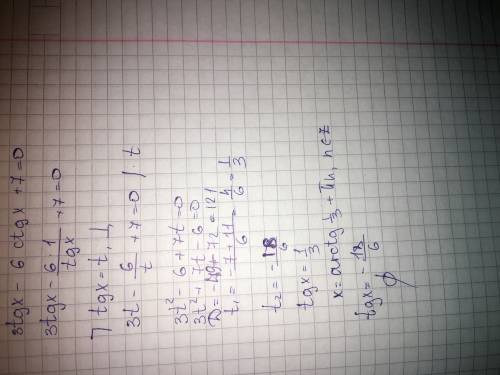 3tgx - 6 ctgx + 7 = 0
3tgx - 6·1/tgx + 7 = 0
] tgx = t,
3t - 6/t + 7 = 0 / · t
3t² - 6 + 7t = 0
3t² + 7t - 6 = 0
D = 49 + 72 = 121
t₁ = -7 + 11/6 = 4/6 = 1/3
t₂ = -18/6
tgx = 1/3
x = arctg 1/3 + πn, n∈Z
tgx = -18/6